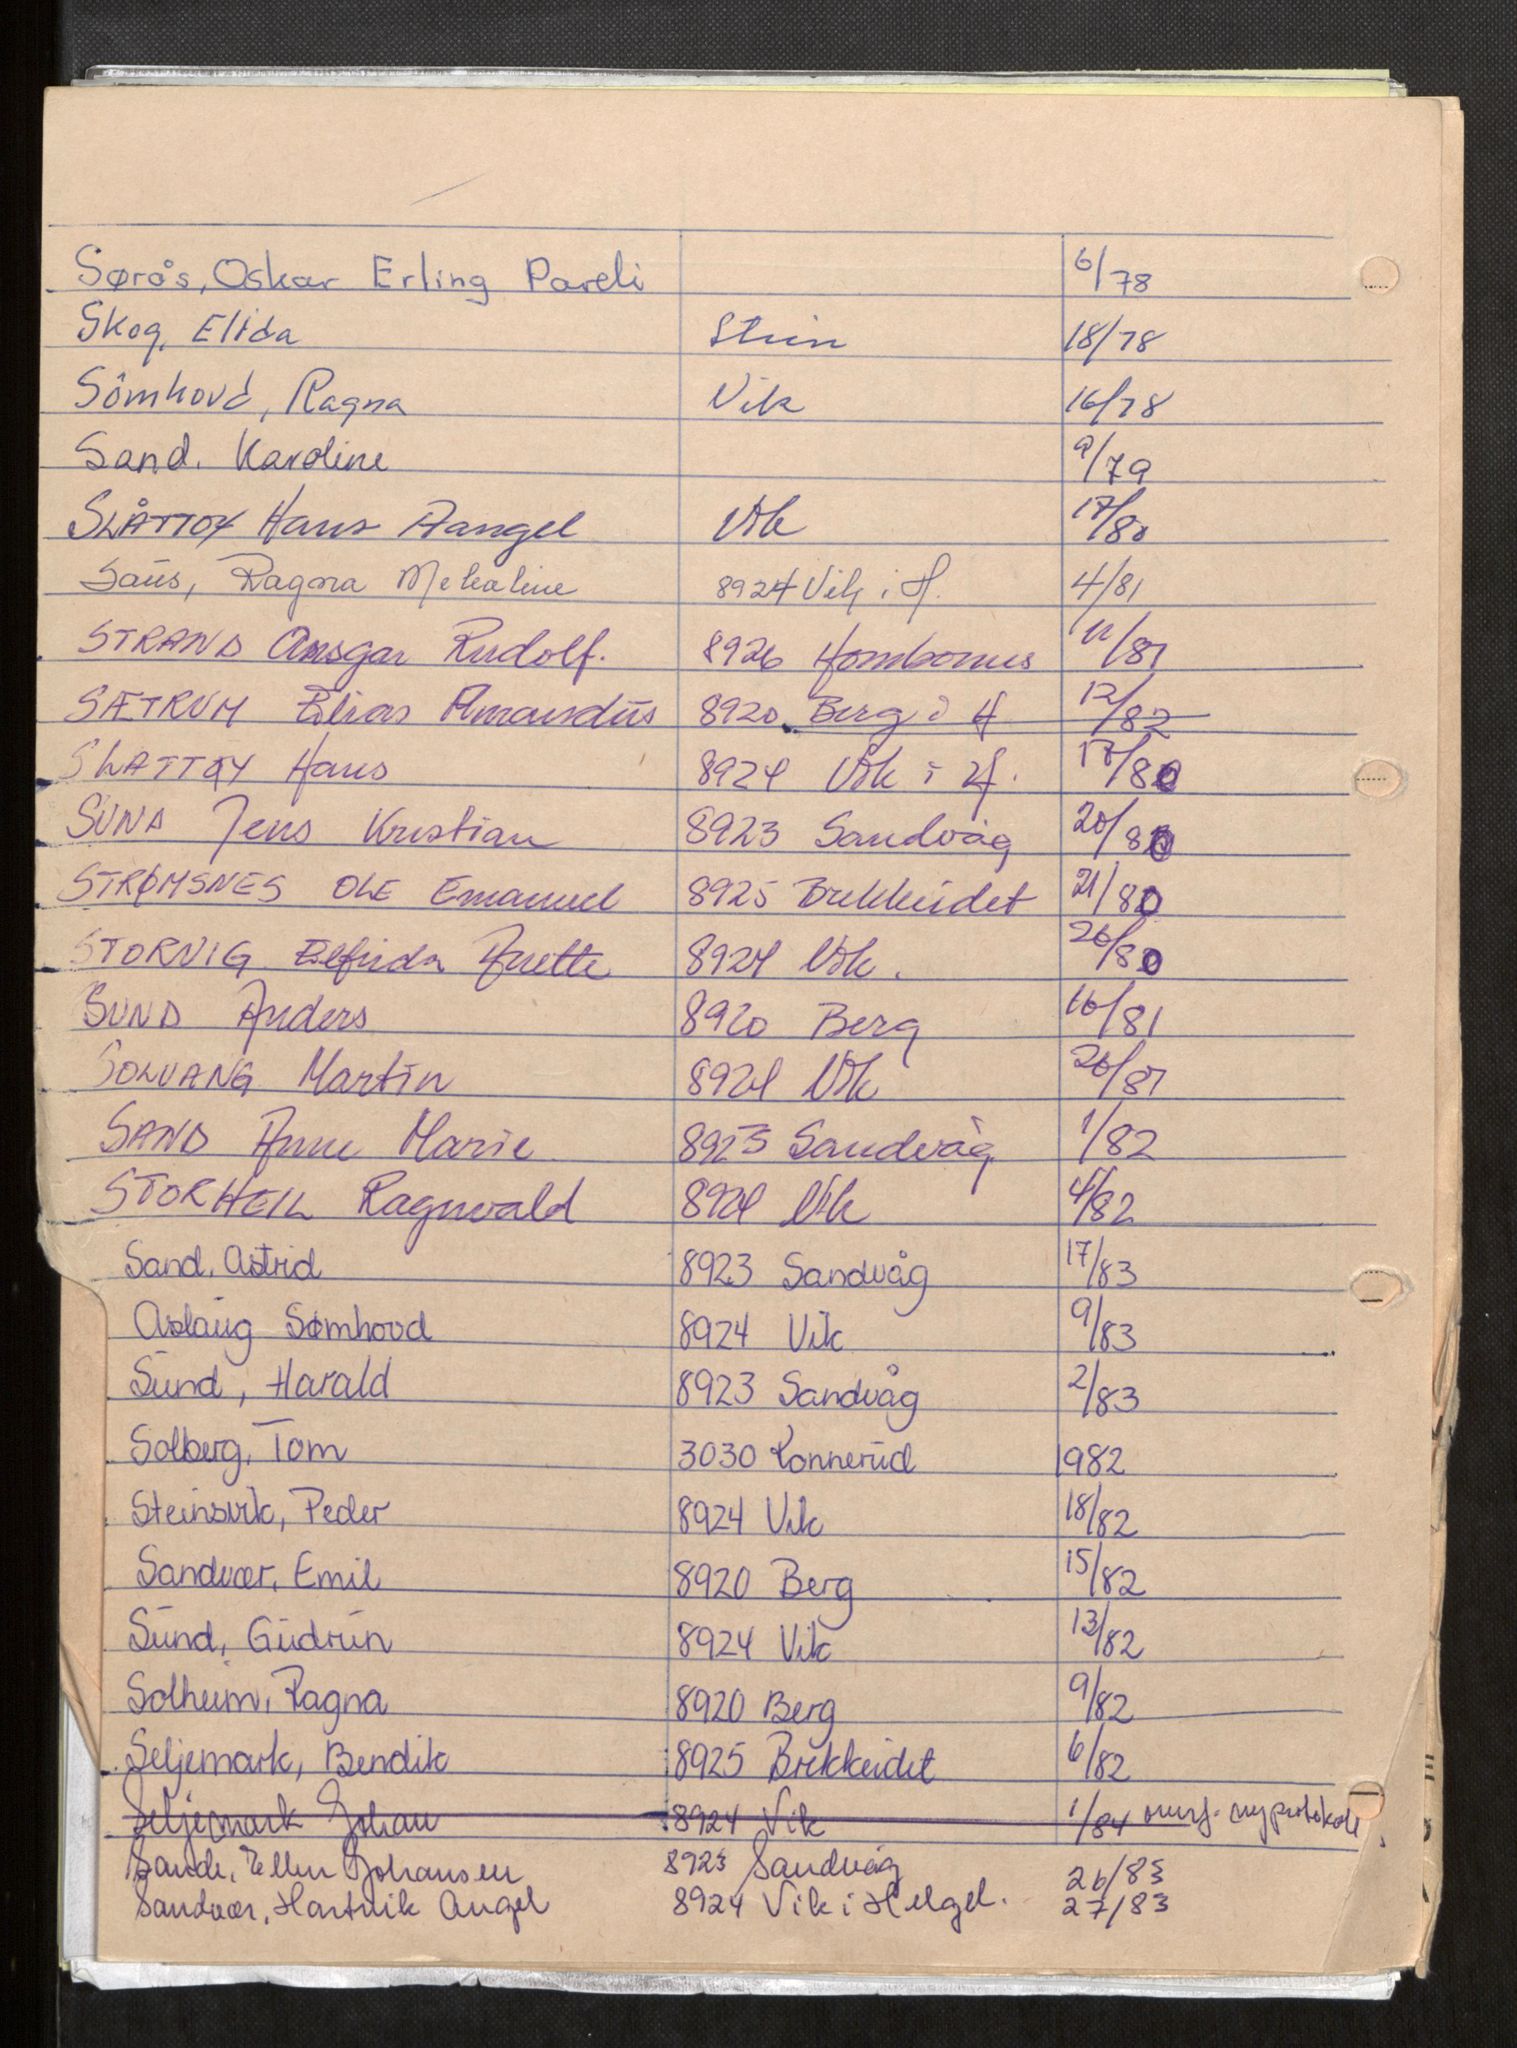 Sørås, Oskar Erling Pareli 6/78
Skog, Elida Stein 18/78
Sômhovd, Ragna Vik 16/78
Sand. Karoline 9/79
SLÅTTØY Hans Aangel Vik 17/80
Saus, Ragna Mekaline 8924 Vik i H. 4/81
STRAND Ansgar Rudolf. 8926 Hombornes 11/81
SÆTRUM Elias Amandus 8920 Berg i H 12/82
SLATTØY Hans 8924 Vik i H. 17/80
SUND Jens Kristian 8923 Sandvåg 20/80
STRØMSNES OLE Emanuel 8925 Brekkeidet 21/80
STORVIG Elfrida Anette 8924 Vik. 26/80
SUND Anders 8920 Berg 16/81
SOLVANG Martin 8924 Vik 26/81
SAND Anne Marie 8923 Sandvåg 1/82
STORHEIL Ragnvald 8924 Vik 4/82
Sand, Astrid 8923 Sandvåg 17/83
Aslaug Sømhovd 8924 Vik 9/83
Sund, Harald 8923 Sandvåg 2/83
Solberg, Tom 3030 Konnerud 1982
Steinsvik, Peder 8924 Vik 18/82
Sandvær, Emil 8920 Berg 15/82
Sund, Gudrun 8924 Vik 13/82
Solheim, Ragna 8920 Berg 9/82
Seljemark, Bendik 8925 Brekkeidet 6/82
Seljemark Johan 8924 Vik 1/84 ny protokoll
Sande, Ellen Johansen 8923 Sandvåg 26/83
Sandvær, Hartvik Angel 8924 Vik i Helgel. 27/83